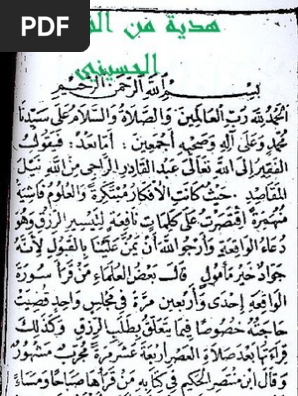 PDF
هدية من
الحسيني
بسم الله الرحمن الرحيم
الحمد لله رب العالمين والصلاة والسلام على سيدنا
محمد وعلى آله وصحبه أجمعين أما بعد: فيقول
الفقير إلى الله تعالى عبد القادر الراجي من الله نيل
المقاصد حيث كانت الأفكار مبتكرة والعلوم فاشية
منهمرة اقتصرت على كلمات نافعة لتيسير الرزق وهو
دعاء الواقعة وأرجو الله أن يمن علينا بالقبول لأنه
جواد خير مأمول قال بعض العلماء من قرأ سورة
الواقعة إحدى وأربعين مرة في مجلس واحد قضيت
حاجته خصوصا فيما يتعلق بطلب الرزق وكذلك
قراءتها بعد صلاة العصر أربعة عشر مرة مجرب مشهور
وقال ابن منتصر الحكيم في كتابه من قرأها صباحا ومساء